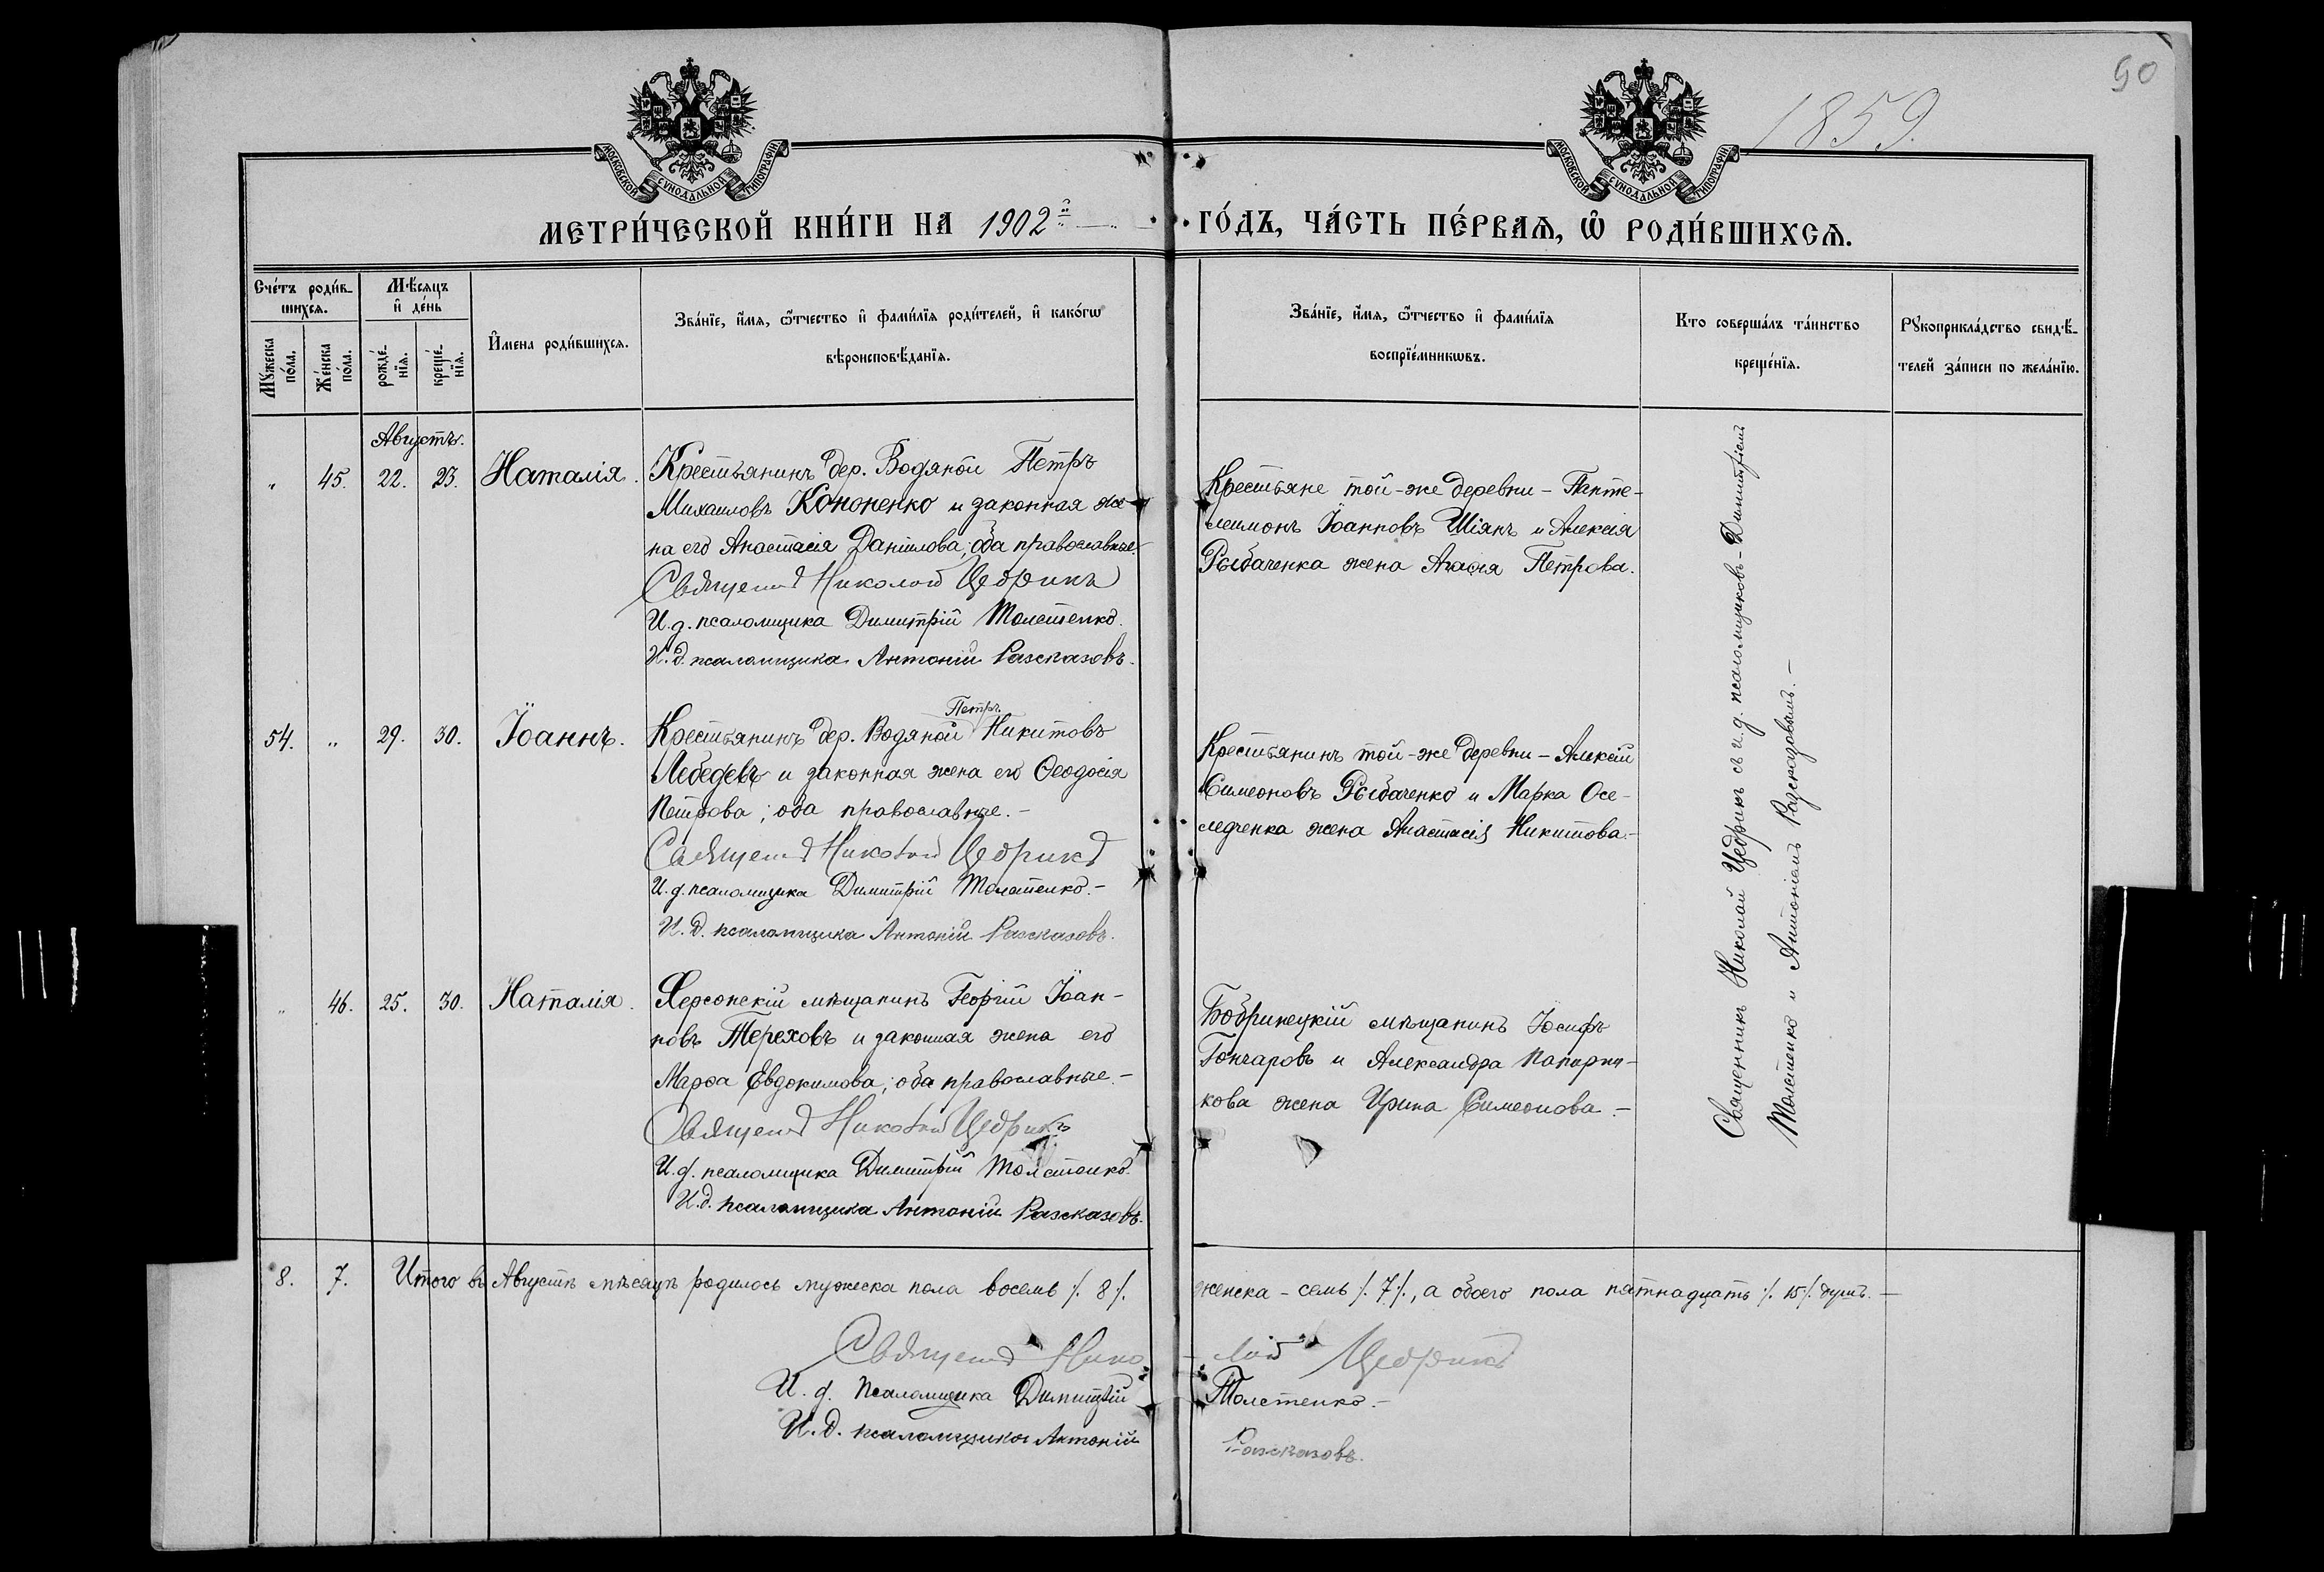 90
1859.
МОСКОВСКОЙ СУНОДАЛЬНОЙ ТИПОГРАФІИ
МОСКОВСКОЙ СУНОДАЛЬНОЙ ТИПОГРАФІИ
МЕТРИ́ЧЕСКОЙ КНИ́ГИ НА 1902й ГО́ДЪ, ЧА́СТЬ ПЕ́РВАѦ, Ѡ҆ РОДИ́ВШИХСѦ.
Сче́тъ роди́в-
шихсѧ.
Мꙋ́жеска по́ла.
Же́нска по́ла.
Мѣ́сѧцъ
и҆ де́нь
рожде́-
нїѧ.
креще́-
нїѧ.
И҆мена роди́вшихсѧ.
Зва́нїе, и҆́мѧ, ѻ҆́тчество и҆ фами́лїѧ роди́телей, и҆ како́гѡ
вѣроисповѣ́данїѧ.
Зва́нїе, и҆́мѧ, ѻ҆́тчество и҆ фами́лїѧ
воспрїе́мникѡвъ.
Кто соверша́лъ та́инство
креще́нїѧ.
Рꙋкоприкла́дство свидѣ́-
телей за́писи по жела́нїю.
Августъ.
" 45. 22. 23. Наталія.
Крестьянинъ дер. Водяной Петръ
Михаиловъ Кононенко и законная же-
на его Анастасія Данилова; оба православные.
Священ Николай Цедрикъ
И. д. псаломщика Димитрій Толстенко.
И. д. псаломщика Антоній Разсказовъ.
Крестьяне той-же деревни – Панте-
леимонъ Іоанновъ Шіянъ и Алексія
Рыбаченка жена Агафія Петрова.
54. " 29. 30. Іоаннъ.
Петръ
Крестьянинъ дер. Водяной Никитовъ
Лебедевъ и законная жена его Ѳеодосія
Петрова; оба православные. –
Священ Николай Цедрикъ
И. д. псаломщика Димитрій Толстенко. –
И. д. псаломщика Антоній Разсказовъ.
Крестьянинъ той-же деревни – Алексій
Симеоновъ Рыбаченко и Марка Осе-
ледченка жена Анастасія Никитова. –
" 46. 25. 30. Наталія.
Херсонскій мѣщанинъ Георгій Іоан-
новъ Тереховъ и законная жена его
Марѳа Евдокимова; оба православные. –
Священ Николай Цедрикъ
И. д. псаломщика Димитрій Толстенко.
И. д. псаломщика Антоній Разсказовъ.
Бобринецкій мѣщанинъ Іосифъ
Гончаровъ и Александра
кова жена Ирина Симеонова. –
Священникъ Николай Цедрикъ съ и. д. псаломщиковъ – Димитріемъ
Толстенко и Антоніемъ Разсказовымъ. –
8. 7. Итого въ Августѣ мѣсяцѣ родилось мужеска пола восемь /. 8 /. женска – семь /. 7 /., а обоего пола пятнадцать /. 15 /. душъ. –
Священ Николай Цедрикъ
И. д. псаломщика Димитрій Толстенко. –
И. д. псаломщика Антоній Разсказовъ.